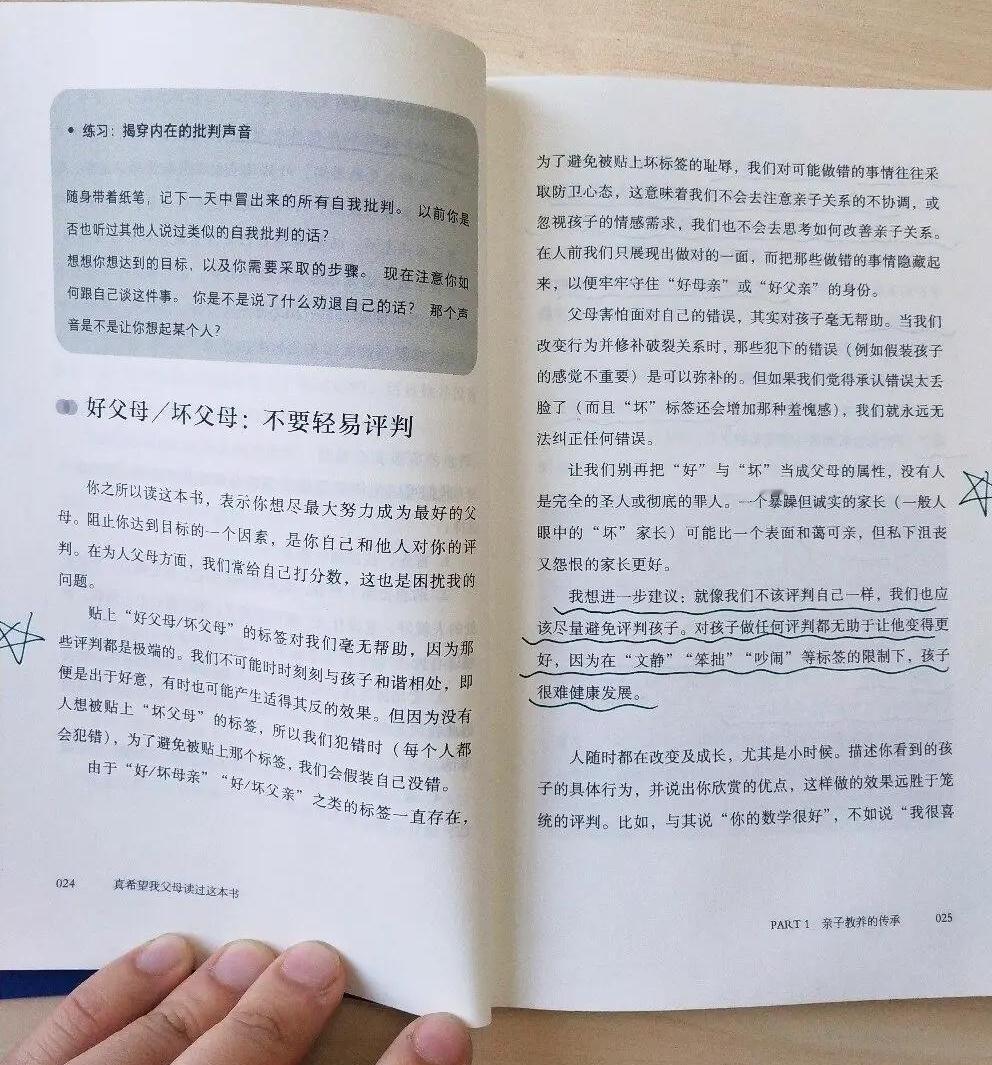 • 练习：揭穿内在的批判声音
随身带着纸笔，记下一天中冒出来的所有自我批判。 以前你是
否也听过其他人说过类似的自我批判的话？
想想你想达到的目标，以及你需要采取的步骤。 现在注意你如
何跟自己谈这件事。 你是不是说了什么劝退自己的话？ 那个声
音是不是让你想起某个人？
好父母／坏父母：不要轻易评判
你之所以读这本书，表示你想尽最大努力成为最好的父
母。阻止你达到目标的一个因素，是你自己和他人对你的评
判。在为人父母方面，我们常给自己打分数，这也是困扰我的
问题。
贴上“好父母/坏父母”的标签对我们毫无帮助，因为那
些评判都是极端的。我们不可能时时刻刻与孩子和谐相处，即
便是出于好意，有时也可能产生适得其反的效果。但因为没有
人想被贴上“坏父母”的标签，所以我们犯错时（每个人都
会犯错），为了避免被贴上那个标签，我们会假装自己没错。
由于“好/坏母亲”“好/坏父亲”之类的标签一直存在，
024 真希望我父母读过这本书
为了避免被贴上坏标签的耻辱，我们对可能做错的事情往往采
取防卫心态，这意味着我们不会去注意亲子关系的不协调，或
忽视孩子的情感需求，我们也不会去思考如何改善亲子关系。
在人前我们只展现出做对的一面，而把那些做错的事情隐藏起
来，以便牢牢守住“好母亲”或“好父亲”的身份。
父母害怕面对自己的错误，其实对孩子毫无帮助。当我们
改变行为并修补破裂关系时，那些犯下的错误（例如假装孩子
的感觉不重要）是可以弥补的。但如果我们觉得承认错误太丢
脸了（而且“坏”标签还会增加那种羞愧感），我们就永远无
法纠正任何错误。
让我们别再把“好”与“坏”当成父母的属性，没有人
是完全的圣人或彻底的罪人。一个暴躁但诚实的家长（一般人
眼中的“坏”家长）可能比一个表面和蔼可亲，但私下沮丧
又怨恨的家长更好。
我想进一步建议：就像我们不该评判自己一样，我们也应
该尽量避免评判孩子。对孩子做任何评判都无助于让他变得更
好，因为在“文静”“笨拙”“吵闹”等标签的限制下，孩子
很难健康发展。
人随时都在改变及成长，尤其是小时候。描述你看到的孩
子的具体行为，并说出你欣赏的优点，这样做的效果远胜于笼
统的评判。比如，与其说“你的数学很好”，不如说“我很喜
PART 1 亲子教养的传承 025